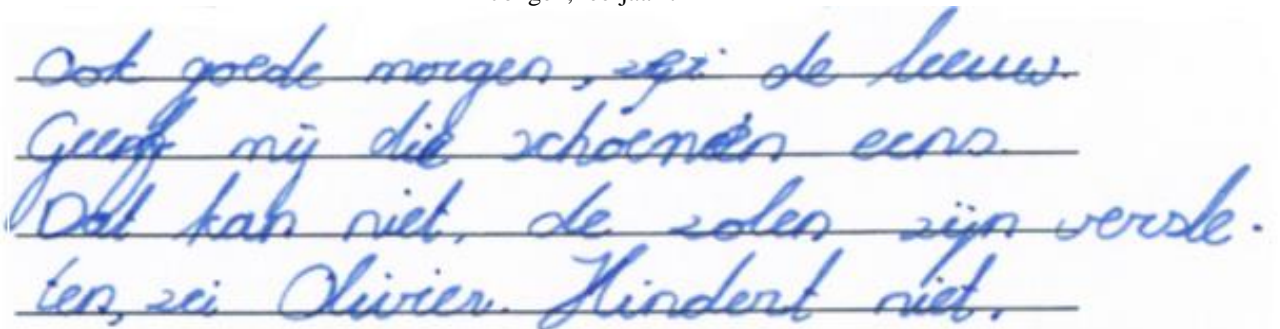 Ook goede morgen, zei de leeuw.
Geef mij die schoenen eens.
Dat kan niet, de zolen zijn versle-
ten, zei Olivier. Hindert niet.